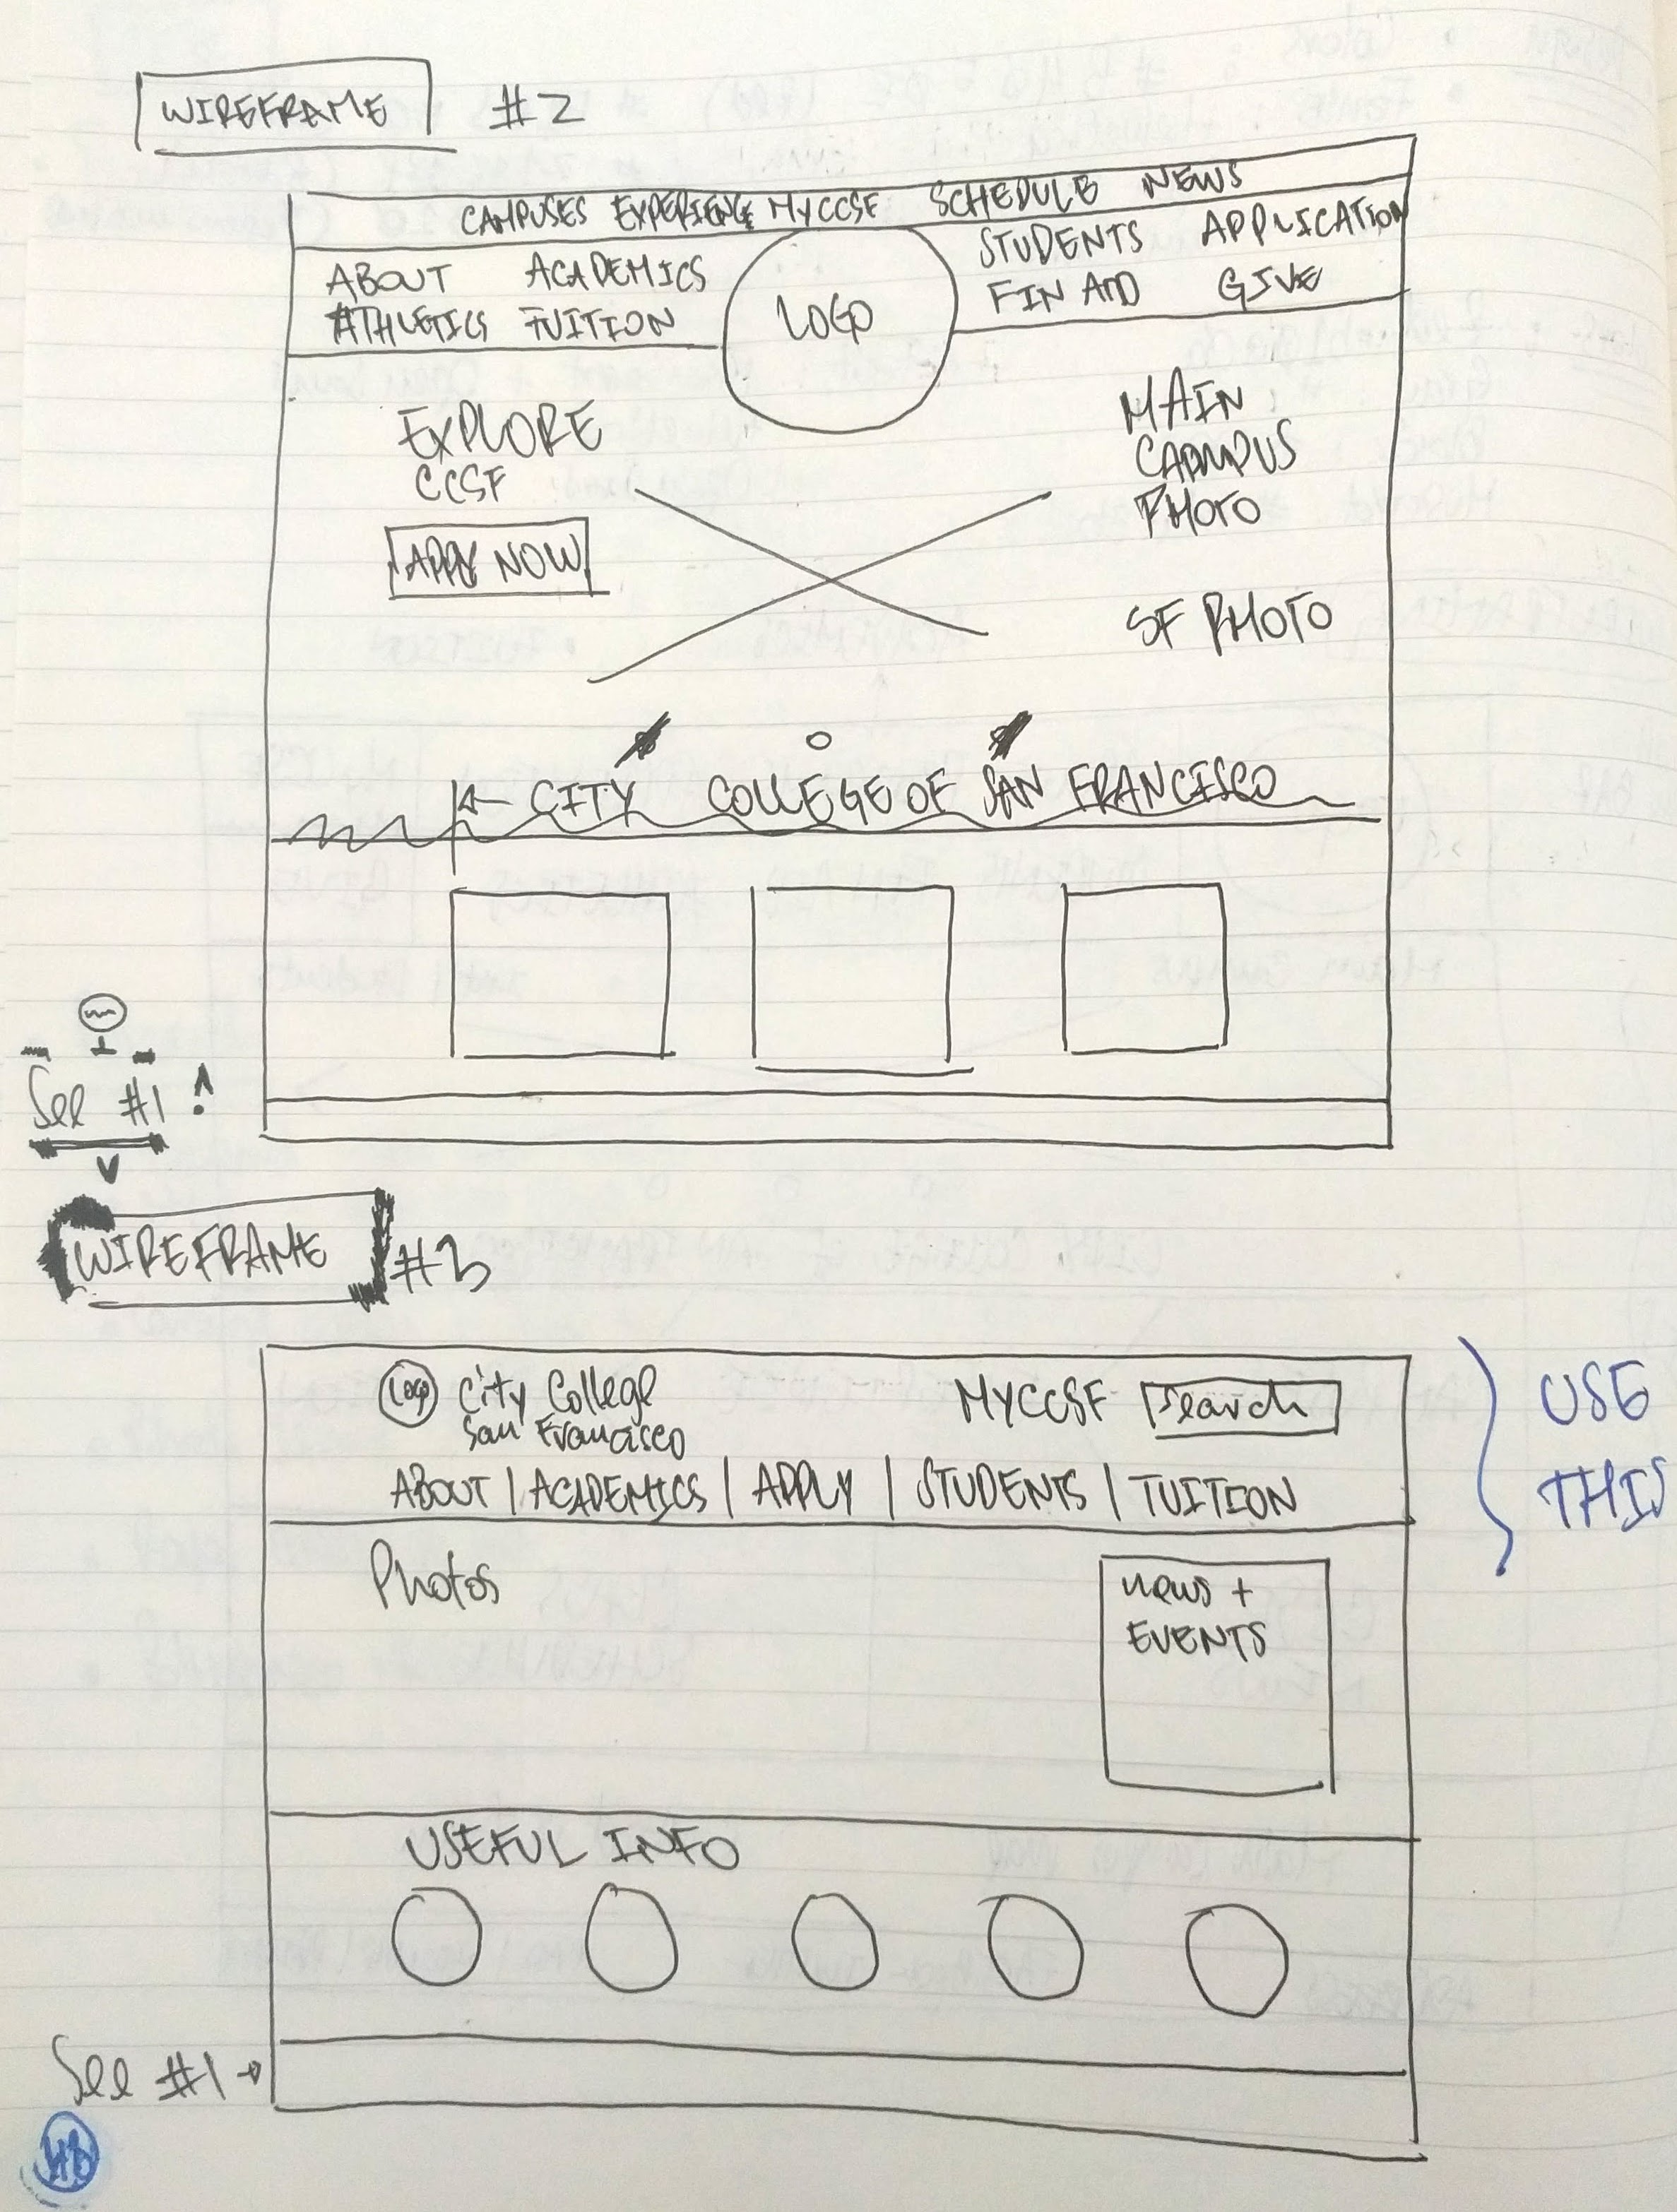 WIREFRAME #2
CAMPUSES EXPERIENCE MYCCSF SCHEDULE NEWS
ABOUT ACADEMICS
ATHLETICS TUITION
LOGO
STUDENTS APPLICATION
FIN AID GIVE
EXPLORE
CCSF
APPLY NOW
MAIN
CAMPUS
PHOTO
SF PHOTO
CITY COLLEGE OF SAN FRANCISCO
See #1
WIREFRAME #3
Logo City College
San Francisco
MYCCSF Search
ABOUT | ACADEMICS | APPLY | STUDENTS | TUITION
USE
THIS
Photos
News +
EVENTS
USEFUL INFO
See #1